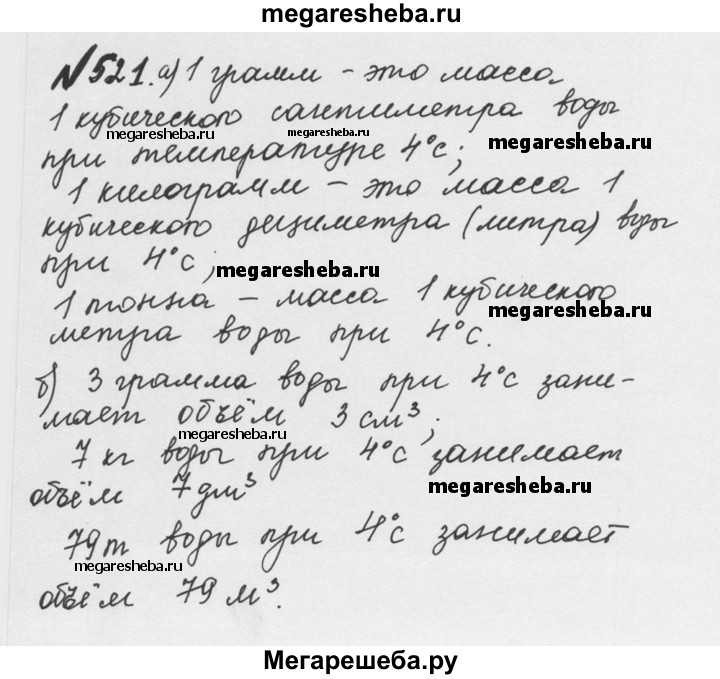 megaresheba.ru
№521. а) 1 грамм – это масса
1 кубического сантиметра воды
megaresheba.ru megaresheba.ru megaresheba.ru
при температуре 4°С;
1 килограмм – это масса 1
кубического дециметра (литра) воды
при 4°С;
megaresheba.ru
1 тонна – масса 1 кубического
megaresheba.ru
метра воды при 4°С.
б) 3 грамма воды при 4°С зани-
мает объём 3 см³;
megaresheba.ru
7 кг воды при 4°С занимает
объём 7 дм³
megaresheba.ru
79 т воды при 4°С занимает
megaresheba.ru
объём 79 м³.
Мегарешеба.ру